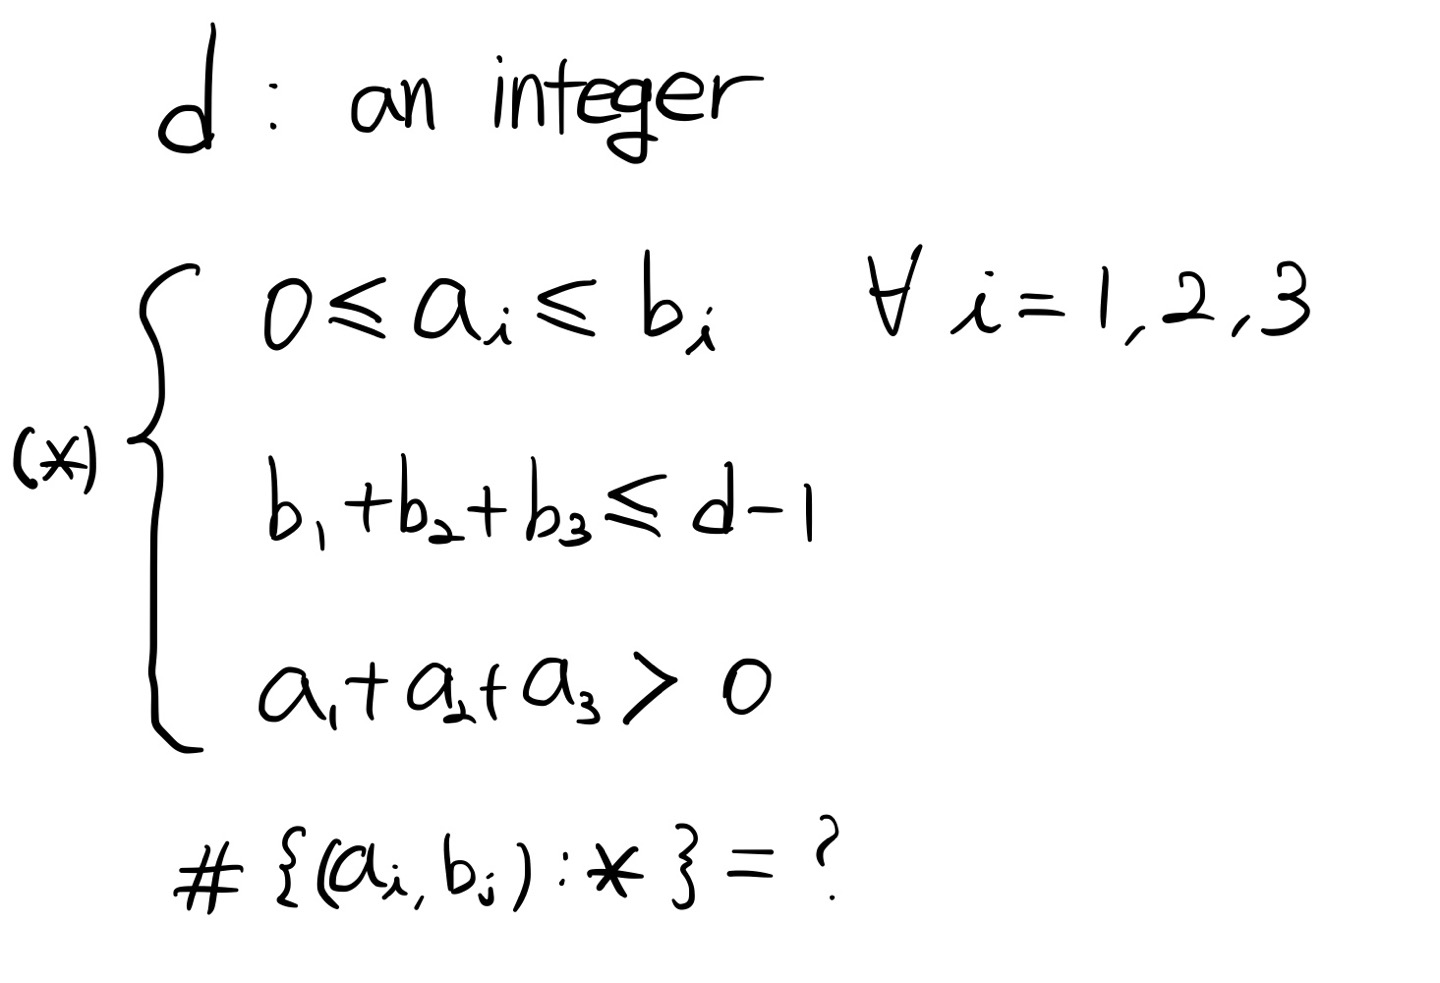 d : an integer
0 ≤ a_i ≤ b_i ∀ i = 1, 2, 3
(*) { b_1 + b_2 + b_3 ≤ d - 1
a_1 + a_2 + a_3 > 0
# {(a_i, b_i) : * } = ?